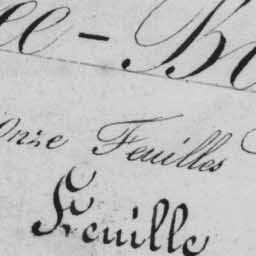 ee - B
Onze Feuilles
Feuille